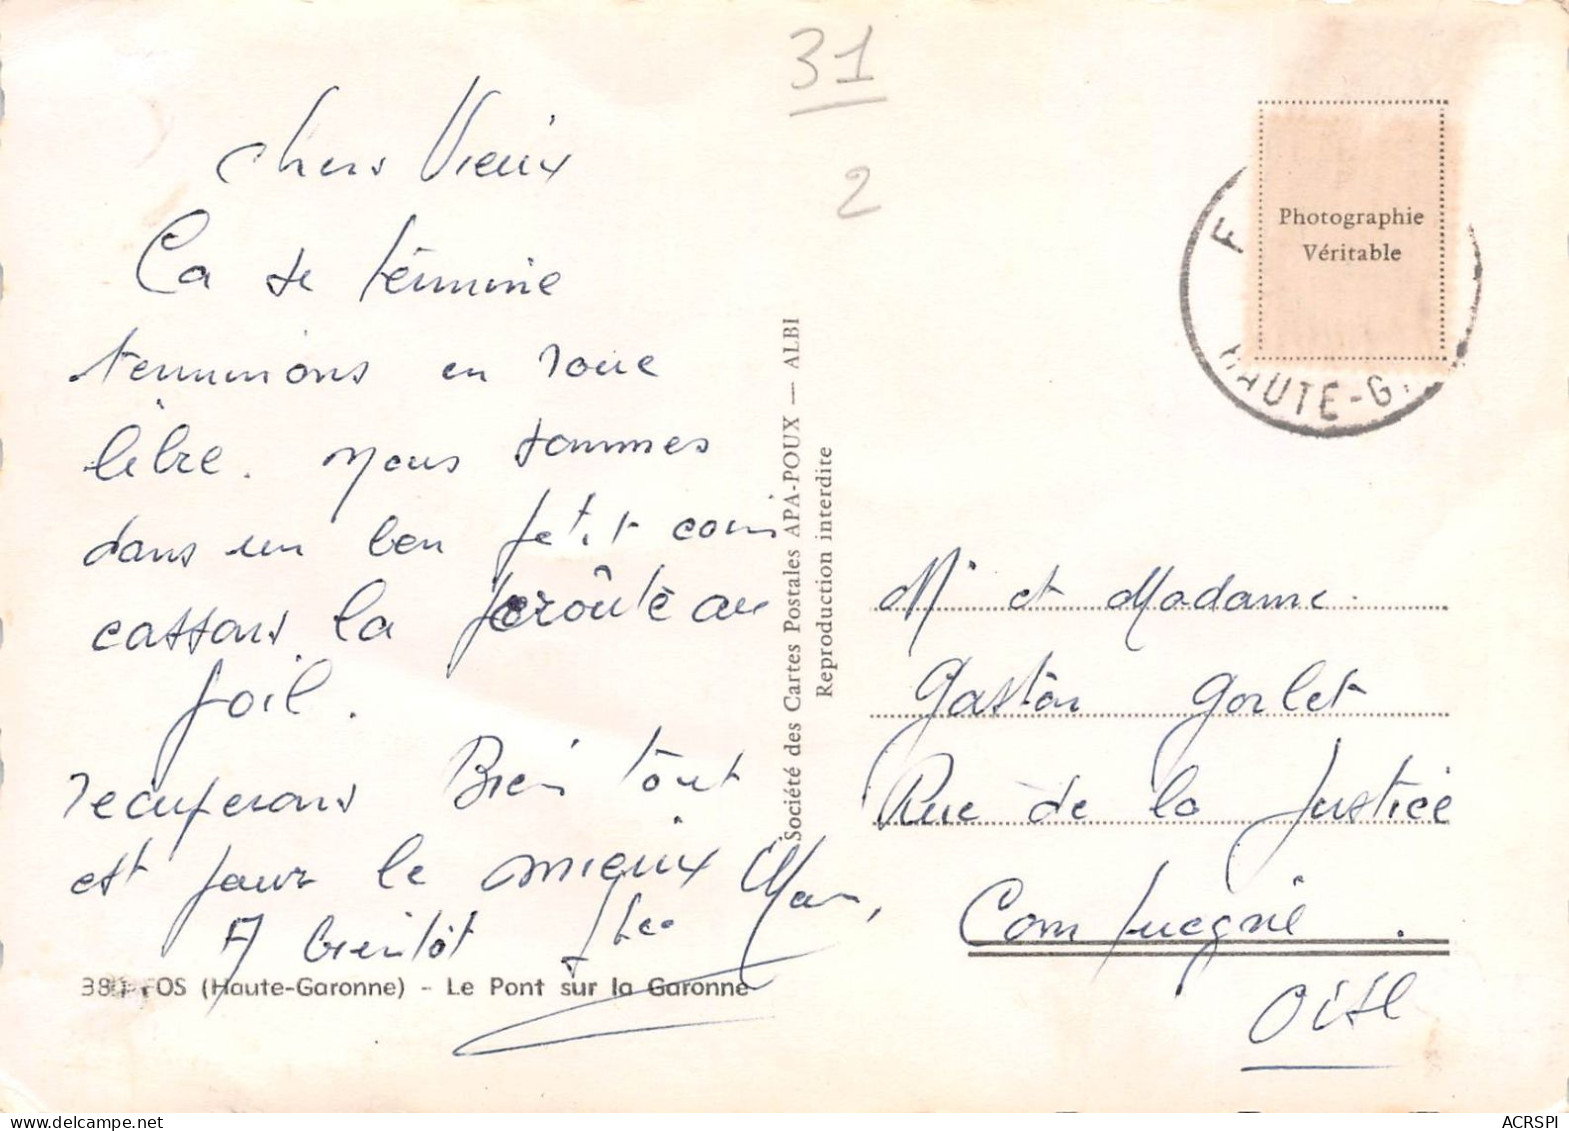 31
2
chers Vieux
Ca se términe
terminons en roue
libre. Nous sommes
dans un ben petit coin
cassons la croûte au
poil.
recuperons Bien tout
est pour le mieux
A bientôt
380 FOS (Haute-Garonne) - Le Pont sur la Garonne
Société des Cartes Postales APA-POUX — ALBI
Reproduction interdite
Photographie
Véritable
F
HAUTE-G.
Mr et Madame
Gaston Gorlet
Rue de la Justice
Compiegne.
OISE
delcampe.net
ACRSPI